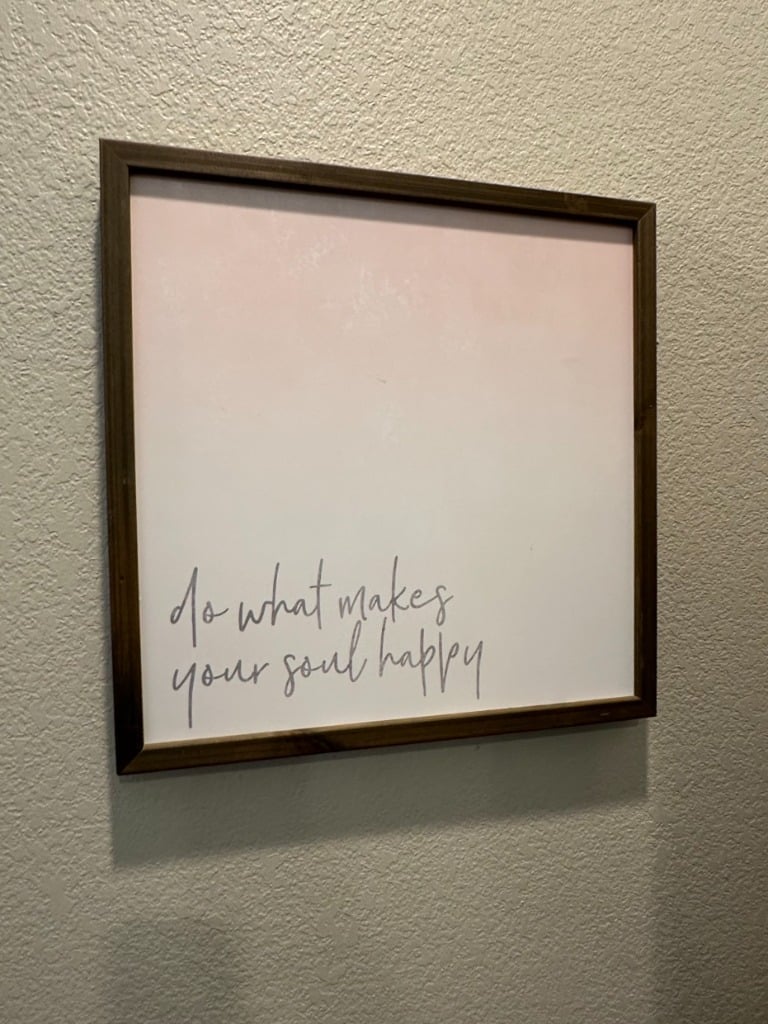 do what makes
your soul happy